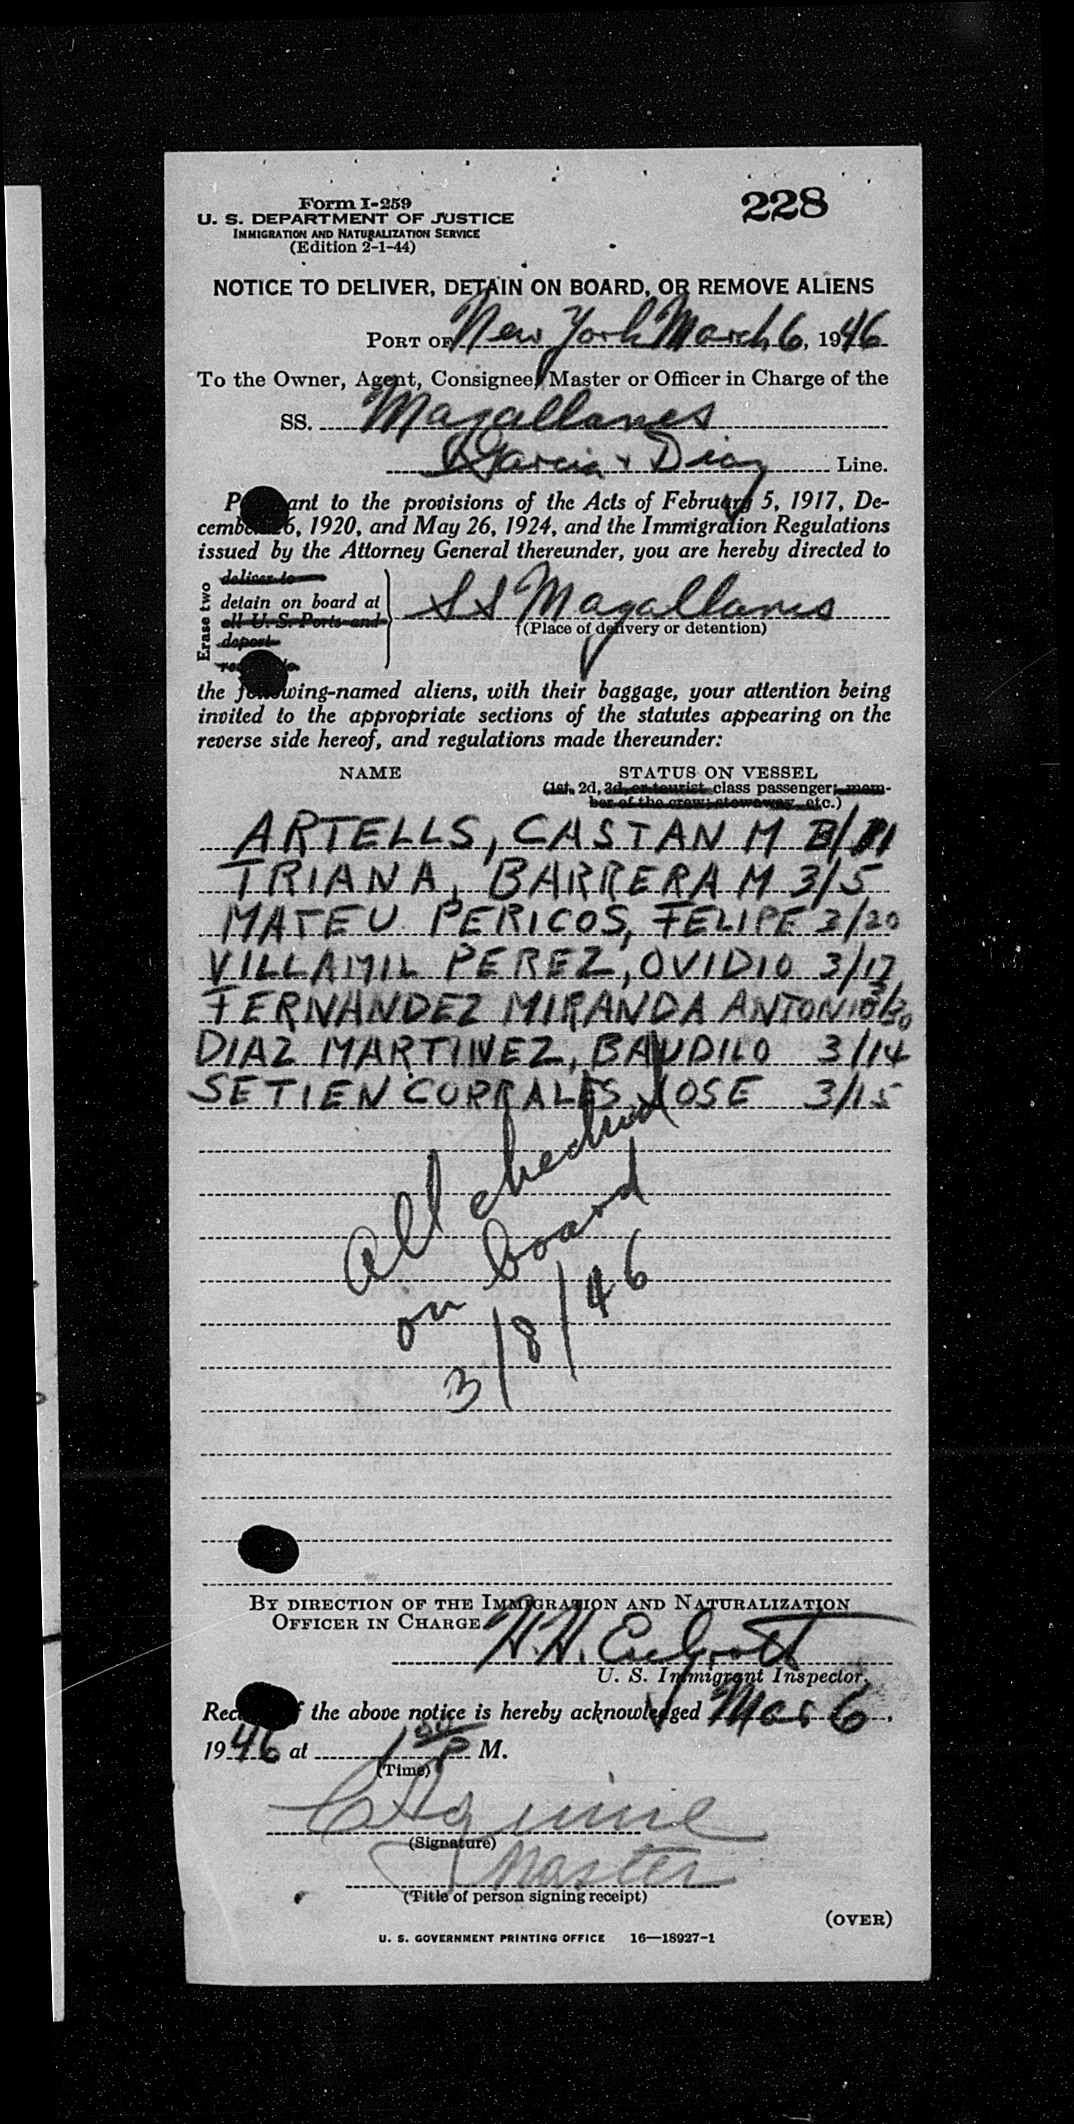 Form I-259
228
U. S. DEPARTMENT OF JUSTICE
IMMIGRATION AND NATURALIZATION SERVICE
(Edition 2-1-44)
NOTICE TO DELIVER, DETAIN ON BOARD, OR REMOVE ALIENS
PORT OF New York March 6, 1946
To the Owner, Agent, Consignee, Master or Officer in Charge of the
SS. Magallanes
Garcia & Diaz Line.
P ant to the provisions of the Acts of February 5, 1917, De-
cember 26, 1920, and May 26, 1924, and the Immigration Regulations
issued by the Attorney General thereunder, you are hereby directed to
Erase two
deliver to
detain on board at
all U. S. Ports and
deport
SS Magallanes
(Place of delivery or detention)
the following-named aliens, with their baggage, your attention being
invited to the appropriate sections of the statutes appearing on the
reverse side hereof, and regulations made thereunder:
NAME STATUS ON VESSEL
(1st, 2d, 3d, or tourist class passenger; mem-
ber of the crew; stowaway, etc.)
ARTELLS, CASTAN M
TRIANA, BARRERA M 3/5
MATEU PERICOS, FELIPE 3/20
VILLAMIL PEREZ, OVIDIO 3/17
FERNANDEZ MIRANDA ANTONIO 3/30
DIAZ MARTINEZ, BAUDILO 3/14
SETIEN CORRALES JOSE 3/15
all checked
on board
3/8/46
BY DIRECTION OF THE IMMIGRATION AND NATURALIZATION
OFFICER IN CHARGE
H. H.
U. S. Immigrant Inspector.
Rec f the above notice is hereby acknowledged Mar 6,
1946 at 1 00 P M.
(Time)
(Signature)
Master
(Title of person signing receipt)
(OVER)
U. S. GOVERNMENT PRINTING OFFICE 16—18927-1